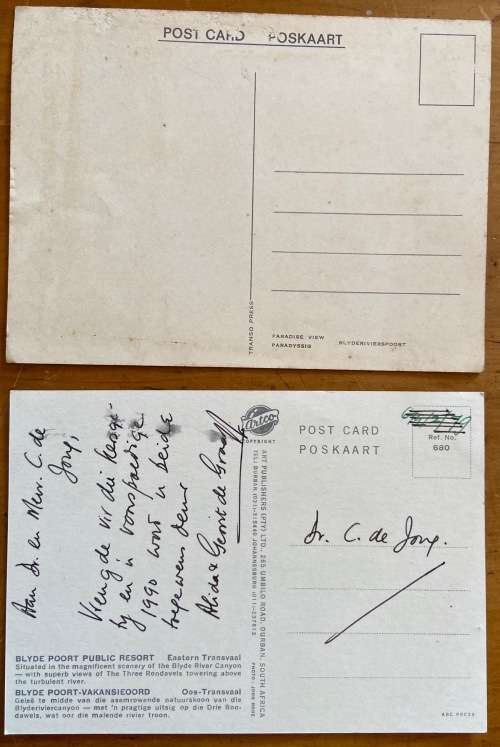 POST CARD POSKAART
TRANSO PRESS
PARADISE VIEW
PARADYSSIG
BLYDERIVIERSPOORT
Aan Dr. en Mev. C. de
Jong,
Vreugde vir die Kersge-
ty en 'n voorspoedige
1990 word u beide
toegewens deur
Alida & Gerrit de Graaff
BLYDE POORT PUBLIC RESORT Eastern Transvaal
Situated in the magnificent scenery of the Blyde River Canyon
— with superb views of The Three Rondavels towering above
the turbulent river.
BLYDE POORT-VAKANSIEOORD Oos-Transvaal
Geleë te midde van die asemrowende natuurskoon van die
Blyderiviercanyon — met 'n pragtige uitsig op die Drie Ron-
dawels, wat oor die malende rivier troon.
Artco
COPYRIGHT
ART PUBLISHERS (PTY) LTD. 255 UMBILO ROAD, DURBAN, SOUTH AFRICA
POST CARD
POSKAART
Ref. No.
680
Dr. C. de Jong.